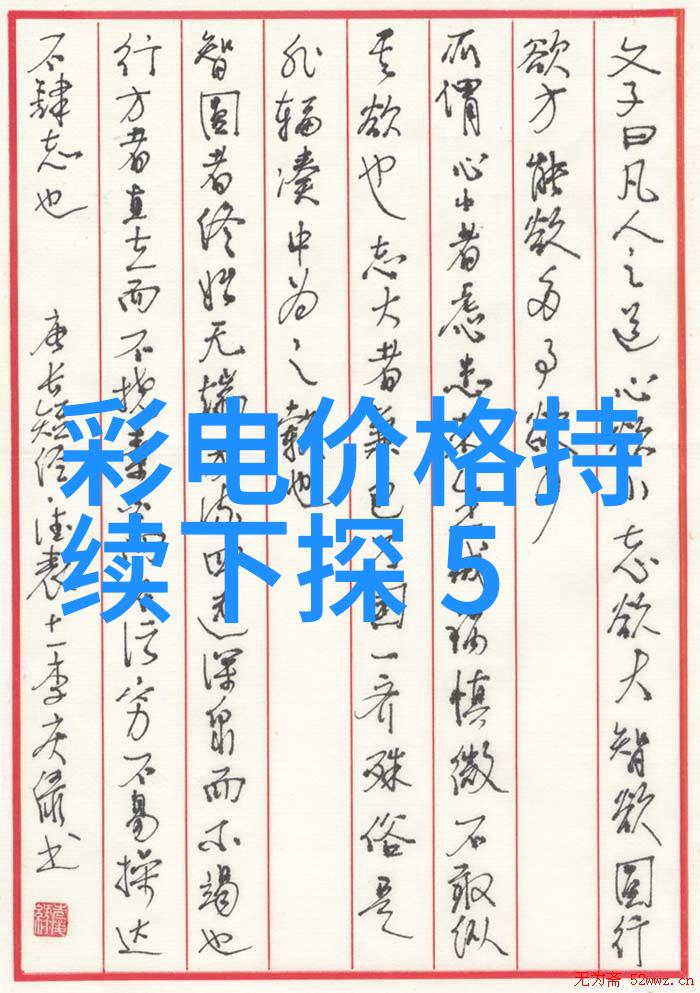 文子曰凡人之道心欲小志欲大智欲圆行
欲方能欲多事欲少
所谓心小者虑患未生戒祸慎微不敢纵
其欲也志大者兼包万国一齐殊俗是
非辐凑中为之毂也
智圆者终始无端方流四远深泉而不竭也
行方者直立而不挠素白而不污穷不易操达
不肆志也
唐长短经·德表十一李庆绿书
彩电价格持
续下探 5
无为斋 52wwz.cn